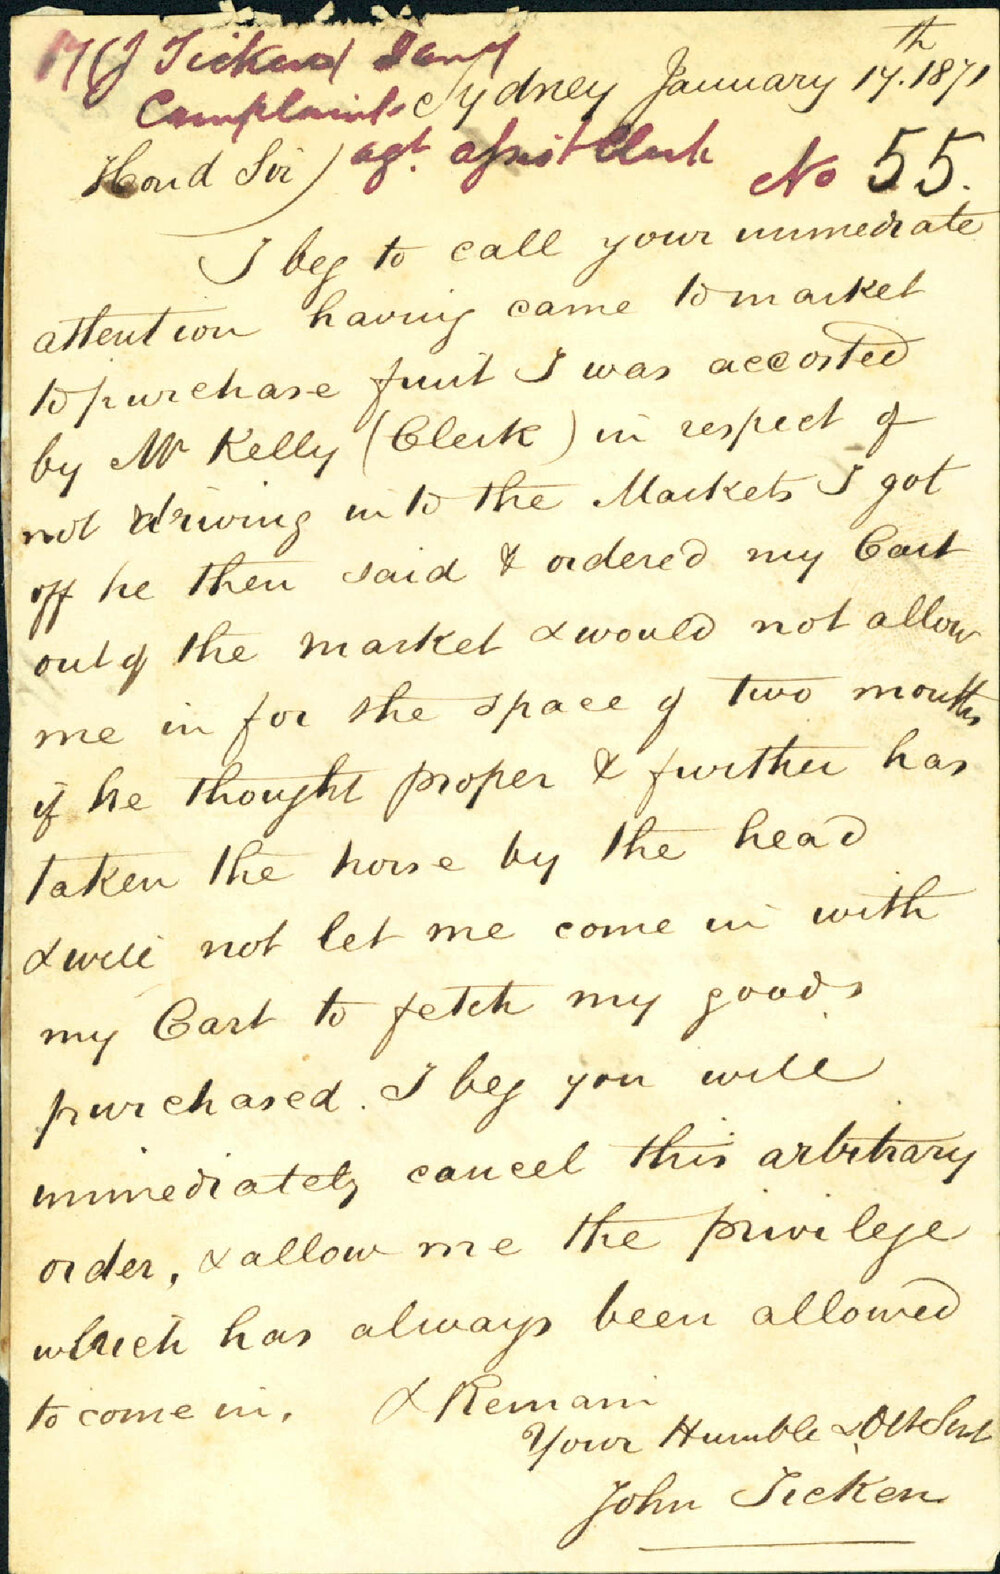 17 (J Ticken
Complaint
agt. assist Clerk
No 55.
Sydney January 17th. 1871
Hond Sir)
I beg to call your immediate
attention having came to market
to purchase fruit I was accosted
by Mr Kelly (Clerk) in respect of
not driving in to the Markets I got
off he then said & ordered my Cart
out of the market & would not allow
me in for the space of two months
if he thought proper & further has
taken the horse by the head
& will not let me come in with
my Cart to fetch my goods
purchased. I beg you will
immediately cancel this arbitrary
order, & allow me the privilege
which has always been allowed
to come in. & Remain
Your Humble & Obt Servt
John Ticken